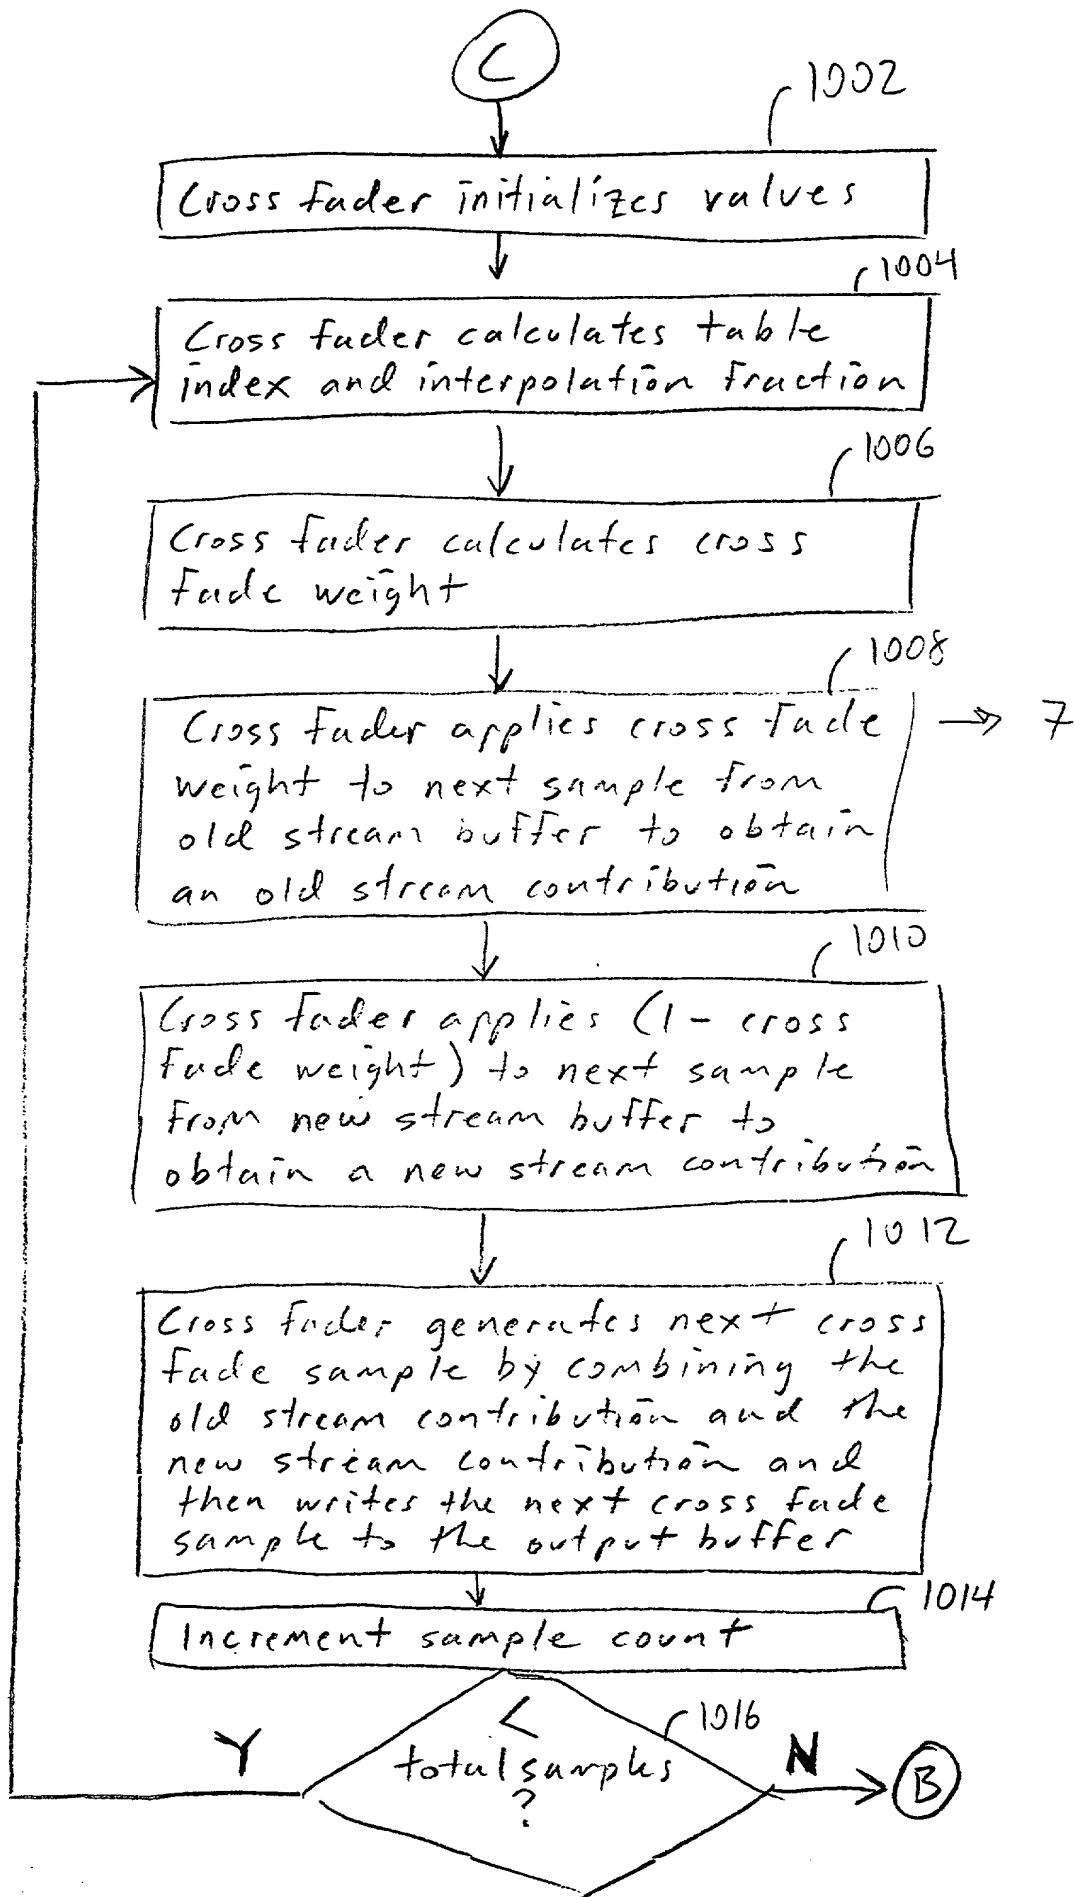 C
1002
Cross fader initializes values
1004
Cross fader calculates table
index and interpolation fraction
1006
Cross fader calculates cross
fade weight
1008
Cross fader applies cross fade
weight to next sample from
old stream buffer to obtain
an old stream contribution
7
1010
Cross fader applies (1 - cross
fade weight) to next sample
from new stream buffer to
obtain a new stream contribution
1012
Cross fader generates next cross
fade sample by combining the
old stream contribution and the
new stream contribution and
then writes the next cross fade
sample to the output buffer
1014
Increment sample count
<
1016
total samples
?
Y
N
B